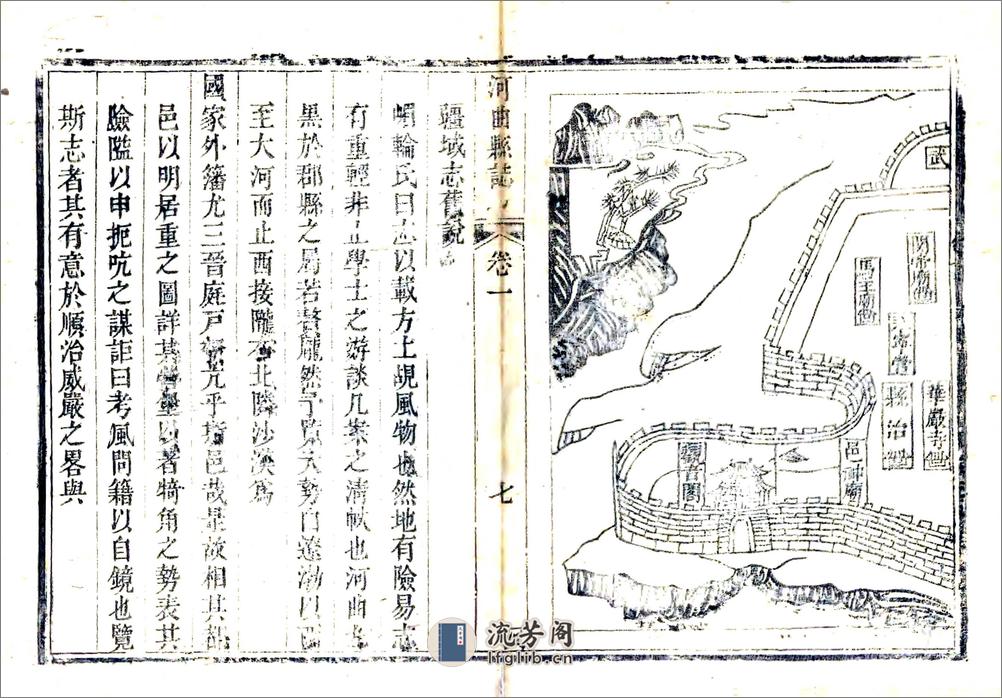 武
關帝廟
馬王廟
縣治
華嚴寺
邑神廟
觀音閣
河曲縣誌
卷一
七
疆域志舊說
輪氏曰志以載方土覘風物也然地有險易志
有重輕非止學士之游談几案之清軼也河曲
黑於郡縣之局若贅龐然予覽大勢自遼渤以
至大河而止西接隴右北隣沙漠為
國家外籓尤三晉庭戶亢乎斯邑哉是故相其
邑以明居重之圖詳其營壘以著犄角之勢表其
險隘以申扼吭之謀詎曰考風問籍以自鏡也覽
斯志者其有意於順治威嚴之畧與
流芳阁
lfglib.cn